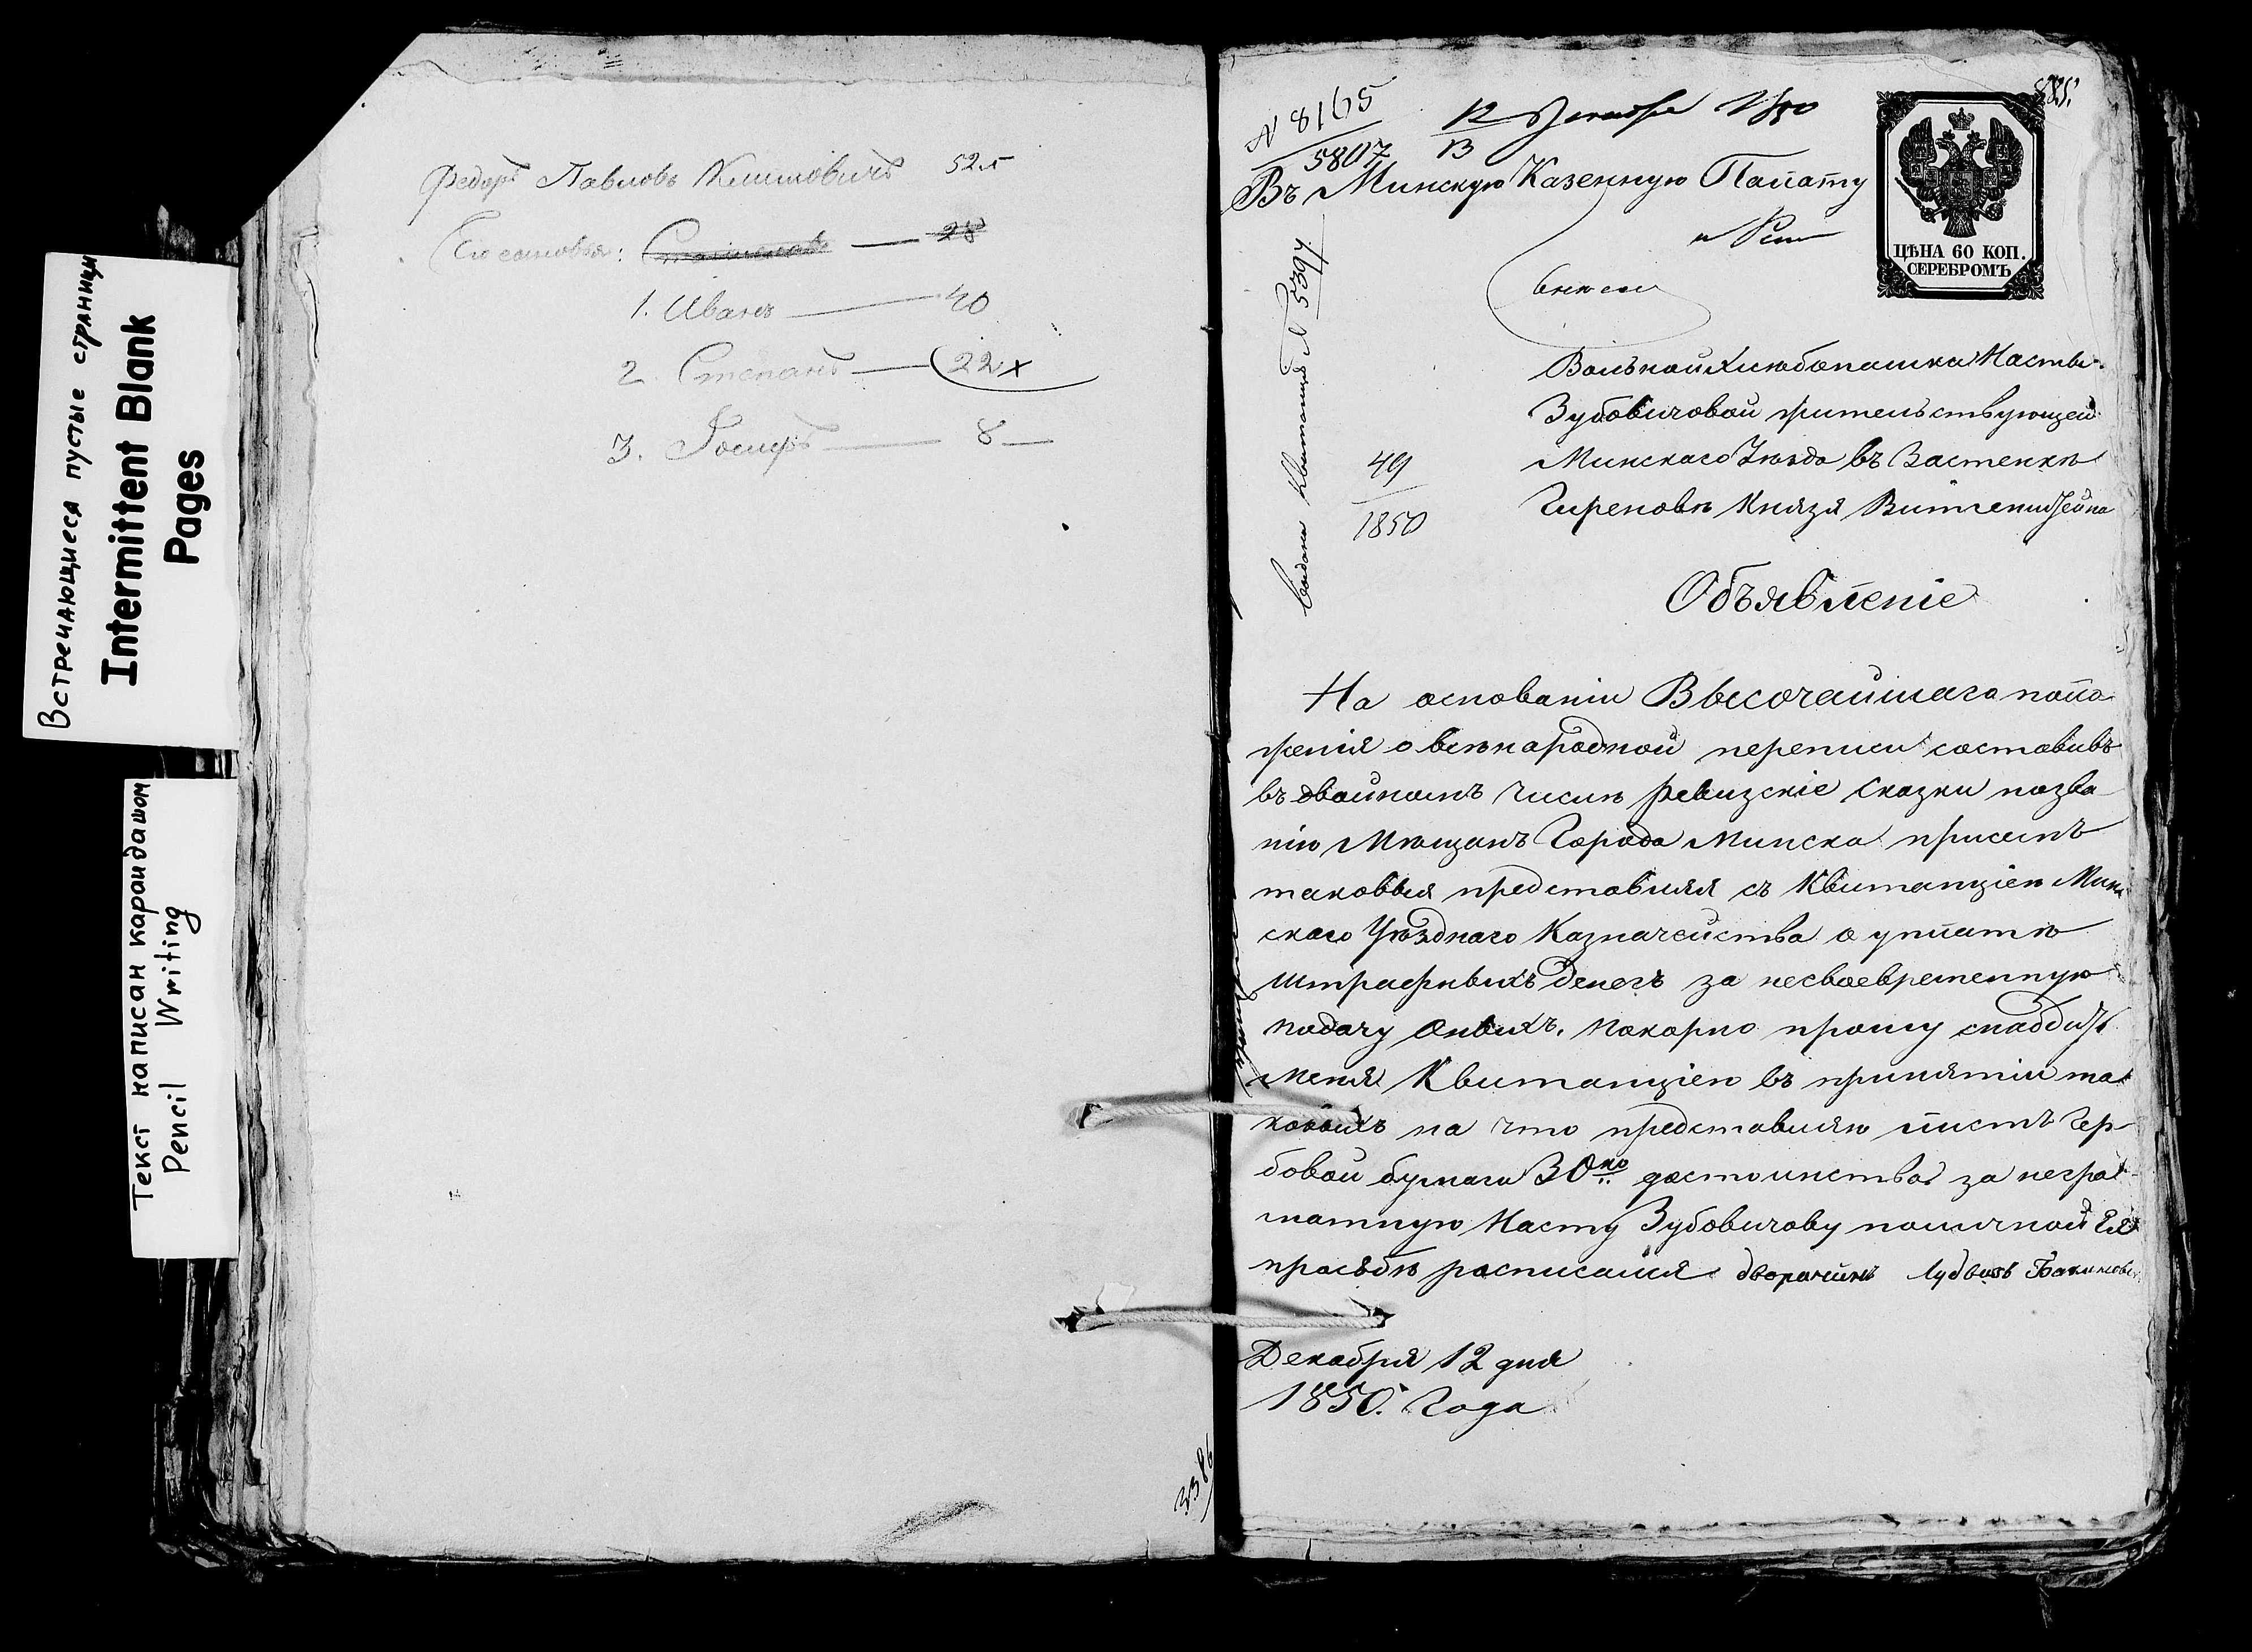 Встречающиеся пустые страницы
Intermittent Blank
Pages
Текст написан карандашом
Pencil Writing
Федоръ Павловъ Климовичъ 52л
Его сыновья: — 28
1. Иванъ — 40
2 Степанъ — 22 х
3. Іосифъ — 8 —
3386
885.
N 8165
5807
12 Декабря 1850
13
Въ Минскую Казенную Палату
ЦѢНА 60 КОП.
СЕРЕБРОМЪ
Выдана Квитанція N 5397
49
1850
Вольной Хлюбопашки Насты
Зубовичовой жительствующей
Минскаго Уезда въ Застенкѣ
Князя Витгенштейна
Объявленіе
На основаніи Высочайшаго поло
женія о всѣнародной переписи составивъ
въ двойномъ числѣ ревизскіе сказки позва
нію Мѣщанъ Города Минска присемъ
таковыя представляя съ Квитанціею Мин
скаго Уѣзднаго Казначейства о уплатѣ
Штрафныхъ денегъ за несвоевременную
подачу оныхъ, покорно прошу снабдить
меня Квитанціею въ принятіи та
ковыхъ на что представляю листъ Гер-
бовой бумаги 30ко достоинства за негра-
матную Насту Зубовичову поличной Ея
прозьбѣ расписался дворянинъ Лудвигъ
Декабря 12 дня
1850. Года